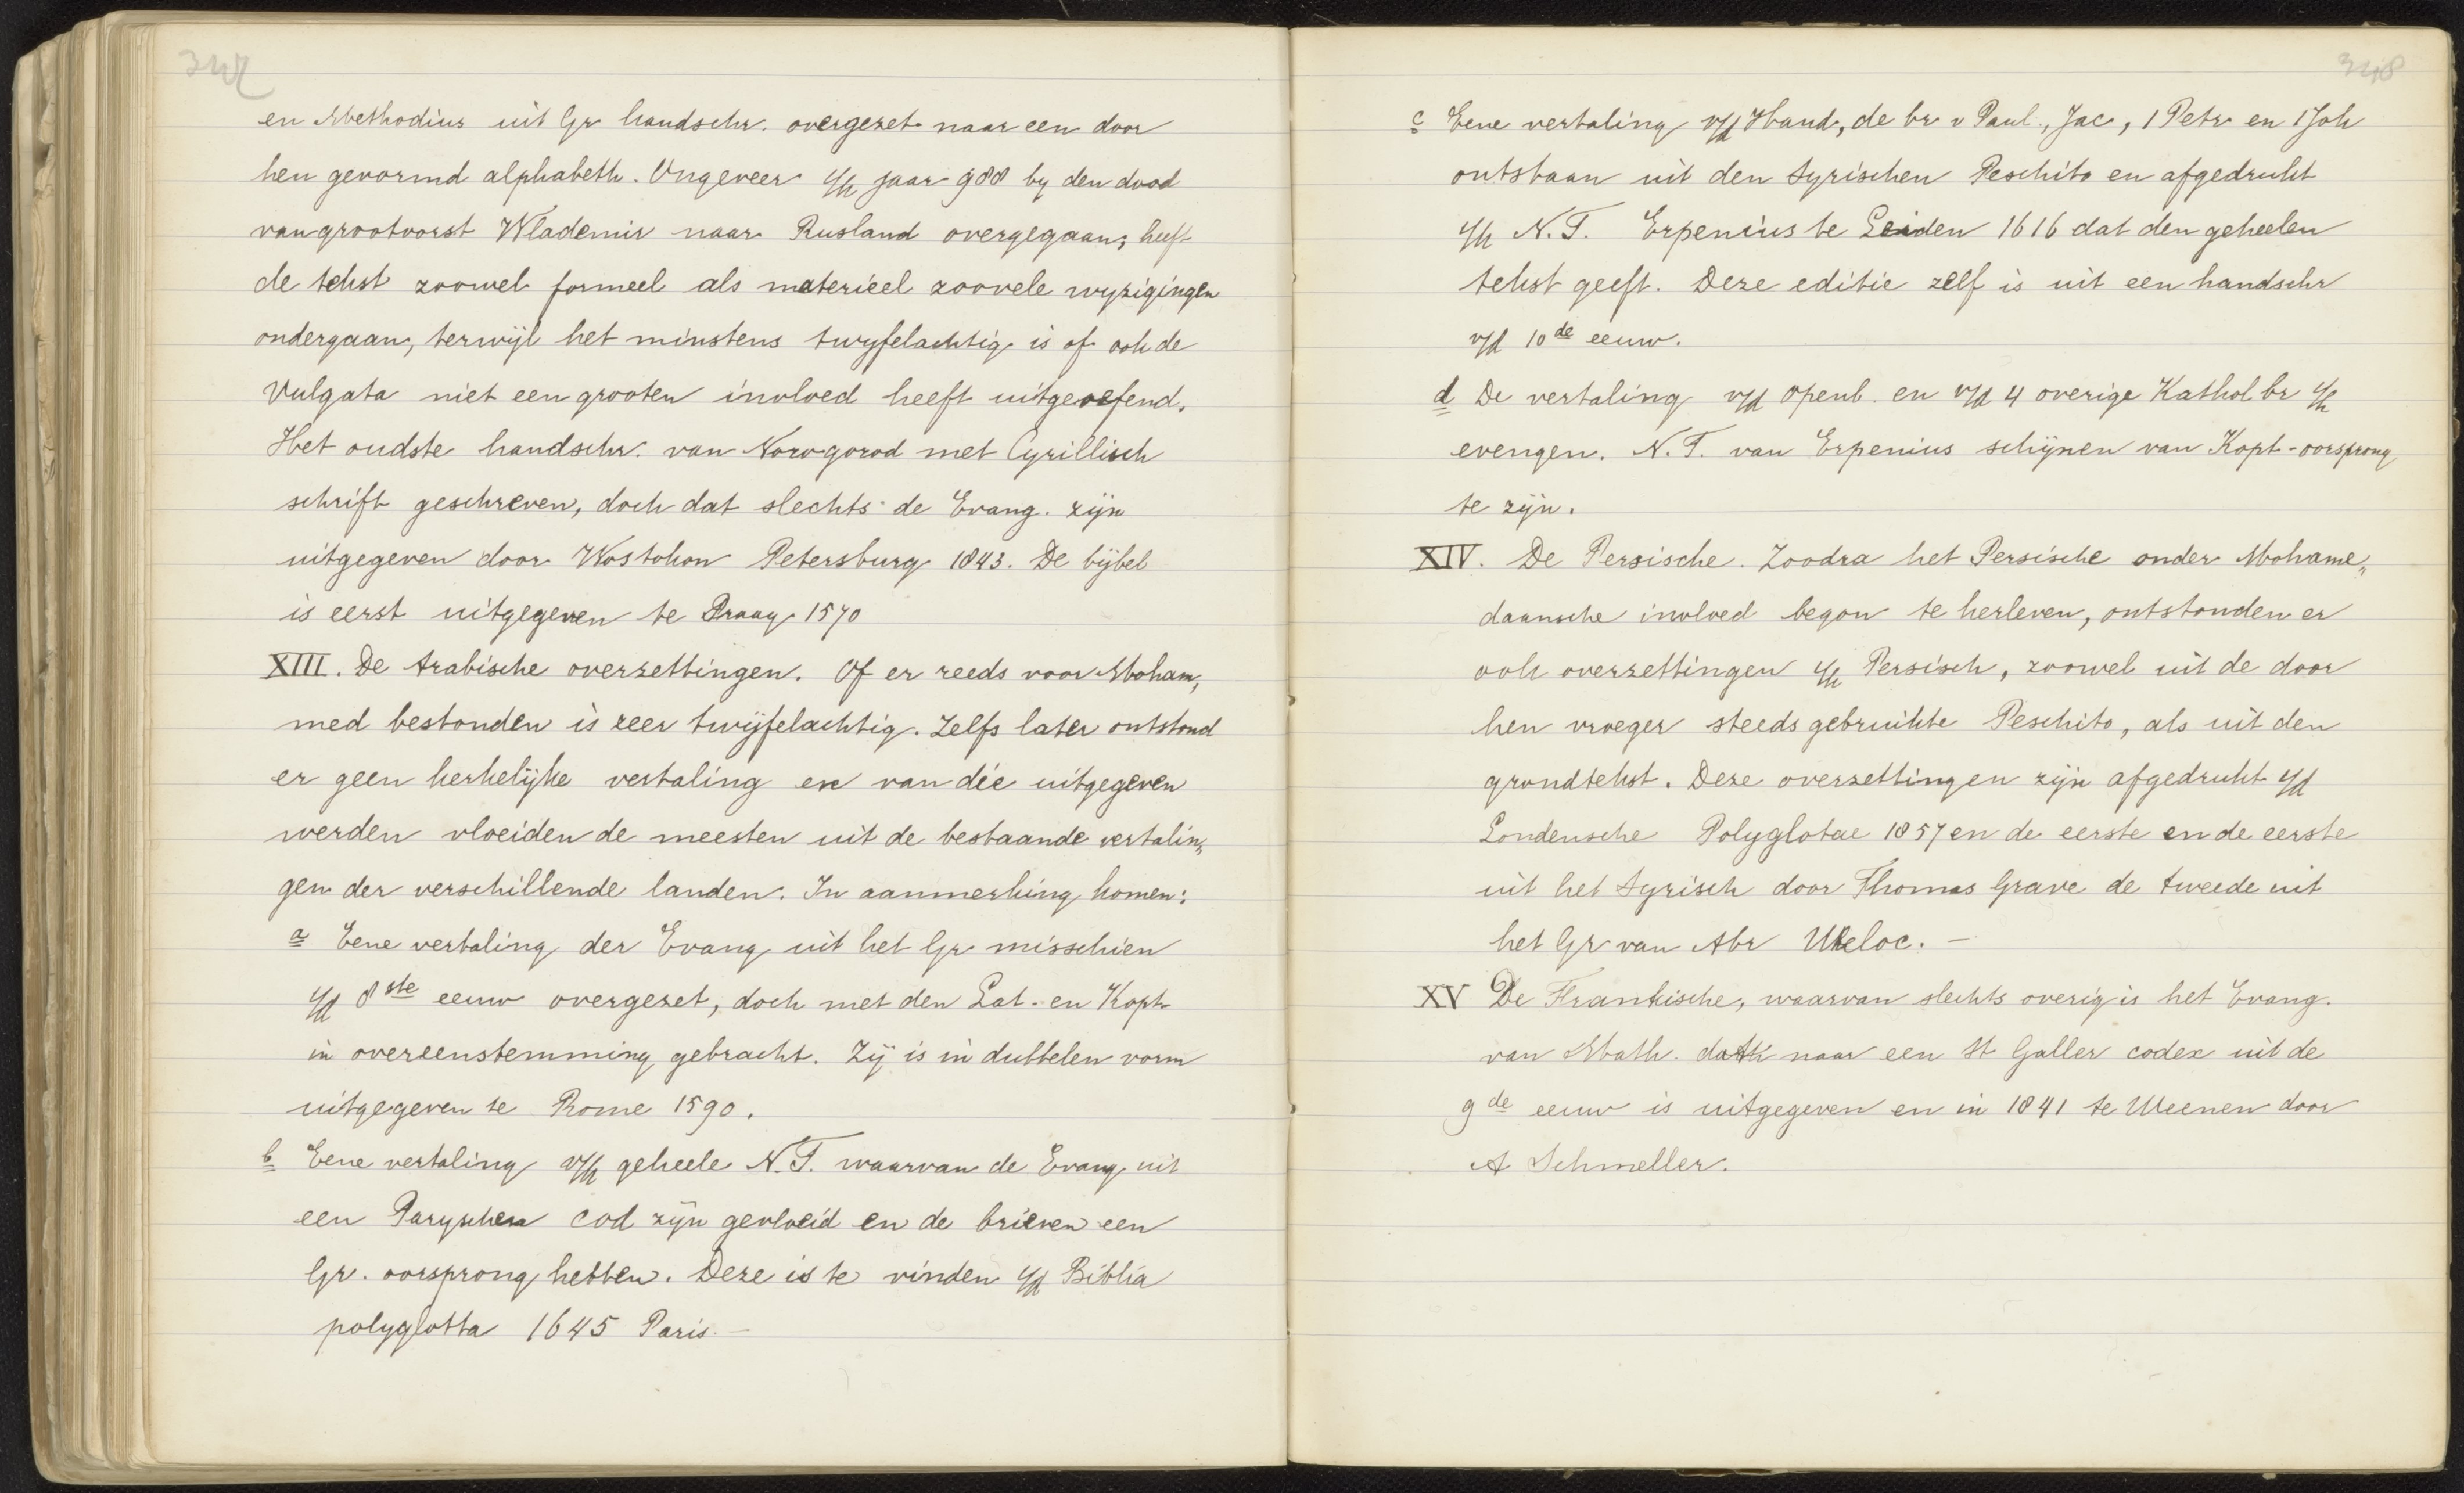 347
en Methodius uit Gr handschr. overgezet naar een door
hen gevormd alphabeth. Ongeveer i/h jaar 988 by den dood
van grootvorst Wlademir naar Rusland overgegaan, heeft
de tekst zoowel formeel als materieel zoovele wyzigingen
ondergaan, terwijl het minstens twyfelachtig is of ook de
Vulgata niet een grooten invloed heeft uitgeoefend.
Het oudste handschr. van Nowgorod met Cyrillisch
schrift geschreven, doch dat slechts de Evang. zijn
uitgegeven door Wostokon Petersburg 1843. De bijbel
is eerst uitgegeven te Praag 1570
XIII. De Arabische overzettingen. Of er reeds voor Moham„
med bestonden is zeer twijfelachtig. Zelfs later ontstond
er geen kerkelijke vertaling en van die uitgegeven
werden vloeiden de meesten uit de bestaande vertalin„
gen der verschillende landen. In aanmerking komen:
a Eene vertaling der Evang uit het Gr misschien
i/d 8ste eeuw overgezet, doch met den Lat. en Kopt
in overeenstemming gebracht. Zij is in dubbelen vorm
uitgegeven te Rome 1590.
b Eene vertaling v/h geheele N.T. waarvan de Evang uit
een Paryschen cod zijn gevloeid en de brieven een
Gr. oorsprong hebben. Deze is te vinden i/d Biblia
polyglotta 1645 Paris. —
348
c Eene vertaling v/d Hand, de br v Paul., Jac, 1 Petr en 1 Joh
ontstaan uit den Syrischen Peschito en afgedrukt
i/h N.T. Erpenius te Leiden 1616 dat den geheelen
tekst geeft. Deze editie zelf is uit een handschr
v/d 10de eeuw.
d De vertaling v/d openb. en v/d 4 overige Kathol br i/h
evengen. N.T. van Erpenius schijnen van Kopt-oorsprong
te zijn.
XIV. De Persische. Zoodra het Persische onder Mohame„
daansche invloed begon te herleven, ontstonden er
ook overzettingen i/h Persisch, zoowel uit de door
hen vroeger steeds gebruikte Peschito, als uit den
grondtekst. Deze overzettingen zijn afgedrukt i/d
Londensche Polyglotae 1857 en de eerste en de eerste
uit het Syrisch door Thomas Grave de tweede uit
het Gr van Abr Wheloc. —
XV De Frankische, waarvan slechts overig is het Evang.
van Math. dat naar een St Galler codex uit de
9de eeuw is uitgegeven en in 1841 te Weenen door
A Schmeller.